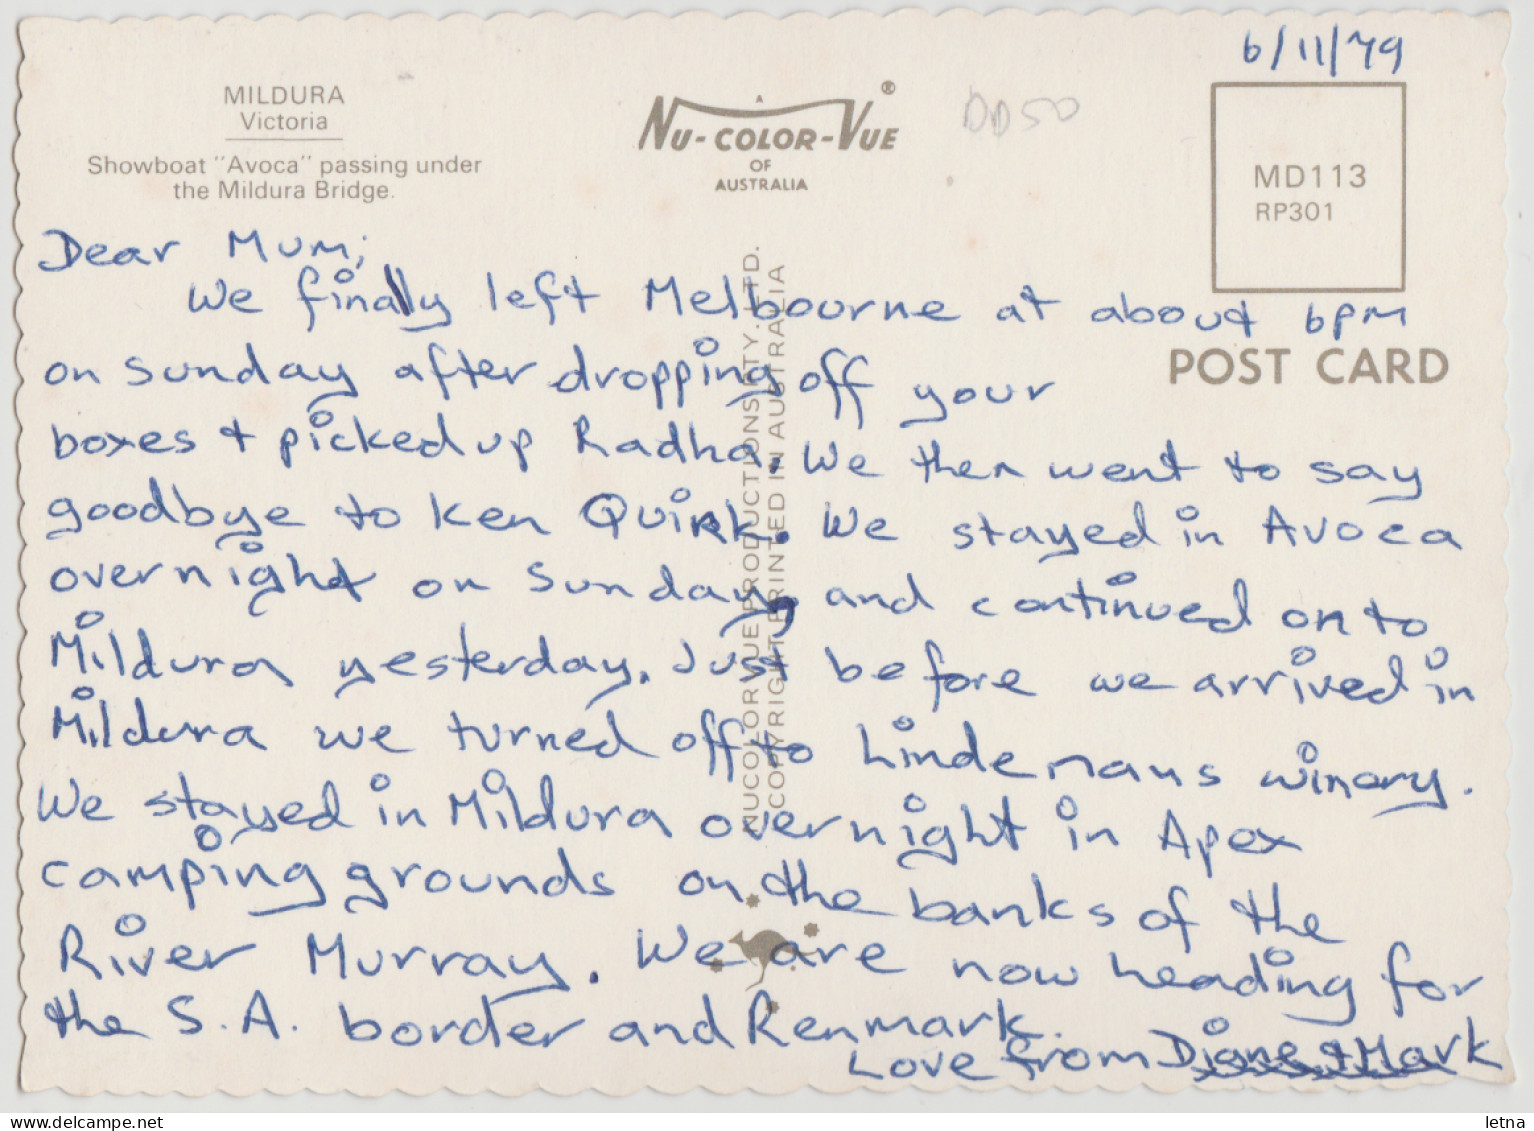 6/11/79
MILDURA
Victoria
Showboat "Avoca" passing under
the Mildura Bridge.
A
NU-COLOR-VUE®
OF
AUSTRALIA
DD50
MD113
RP301
POST CARD
NUCOLORVUE PRODUCTIONS PTY. LTD.
COPYRIGHT PRINTED IN AUSTRALIA
Dear Mum;
We finally left Melbourne at about 6pm
on Sunday after dropping off your
boxes + picked up Radha. We then went to say
goodbye to Ken Quirk. We stayed in Avoca
overnight on Sunday, and continued on to
Mildura yesterday. Just before we arrived in
Mildura we turned off to Lindemans winery.
We stayed in Mildura overnight in Apex
camping grounds on the banks of the
River Murray. We are now heading for
the S.A. border and Renmark.
Love from Diane + Mark
www.delcampe.net
letna